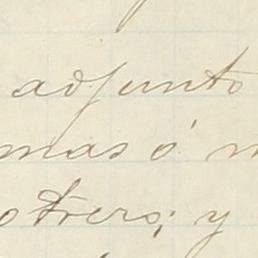 adjunto
mas ó m
otrero; y